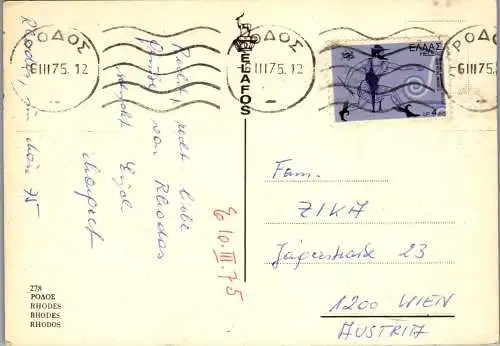 Rhodos, im März 75
Recht liebe
Grüße von Rhodos
Margret
ΡΟΔΟΣ
6 III 75. 12
ELAFOS
ΡΟΔΟΣ
6 III 75. 12
ΕΛΛΑΣ
ΡΟΔΟΣ
6 III 75. 12
Fam.
ZIKA
Jägerstraße 23
1200 WIEN
AUSTRIA
10. III. 75
278
ΡΟΔΟΣ
RHODES
RHODES
RHODOS